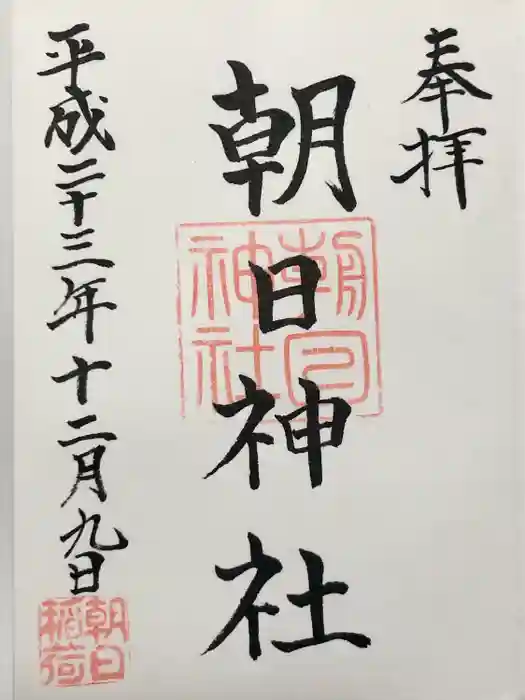 奉拝
朝日神社
平成二十三年十二月九日
朝日神社
朝日稲荷